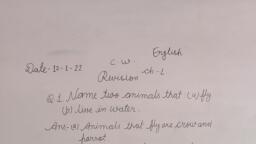 English
Date- 12-1-22 C.W.
Revision ch-1
Q1. Name two animals that (a) fly
(b) live in water.
Ans-(a) Animals that fly are crow and
parrot